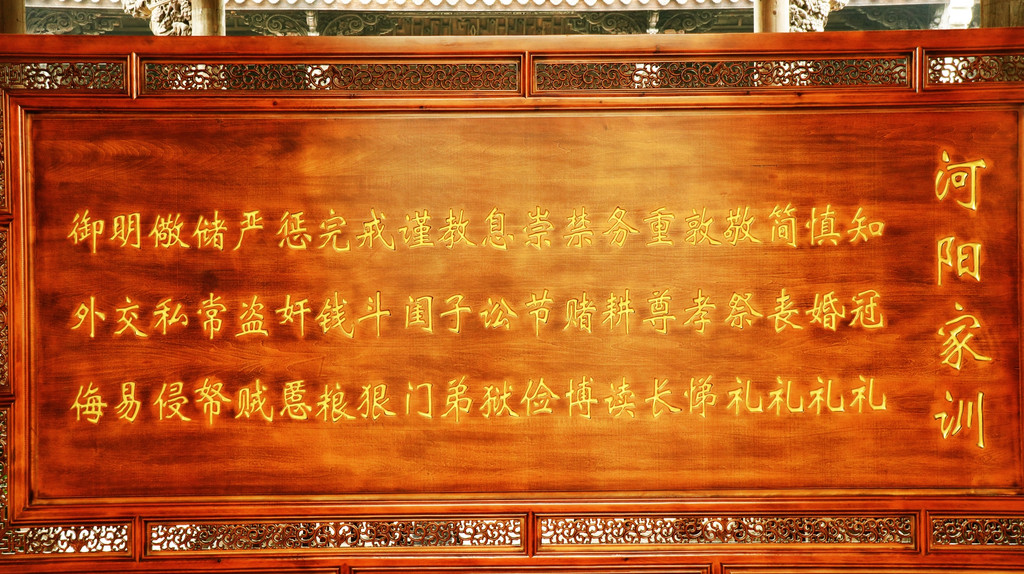 河阳家训
知冠礼
慎婚礼
简丧礼
敬祭礼
敦孝悌
重尊长
务耕读
禁赌博
崇节俭
息讼狱
教子弟
谨闺门
戒斗狠
完钱粮
惩奸慝
严盗贼
储常帑
儆私侵
明交易
御外侮